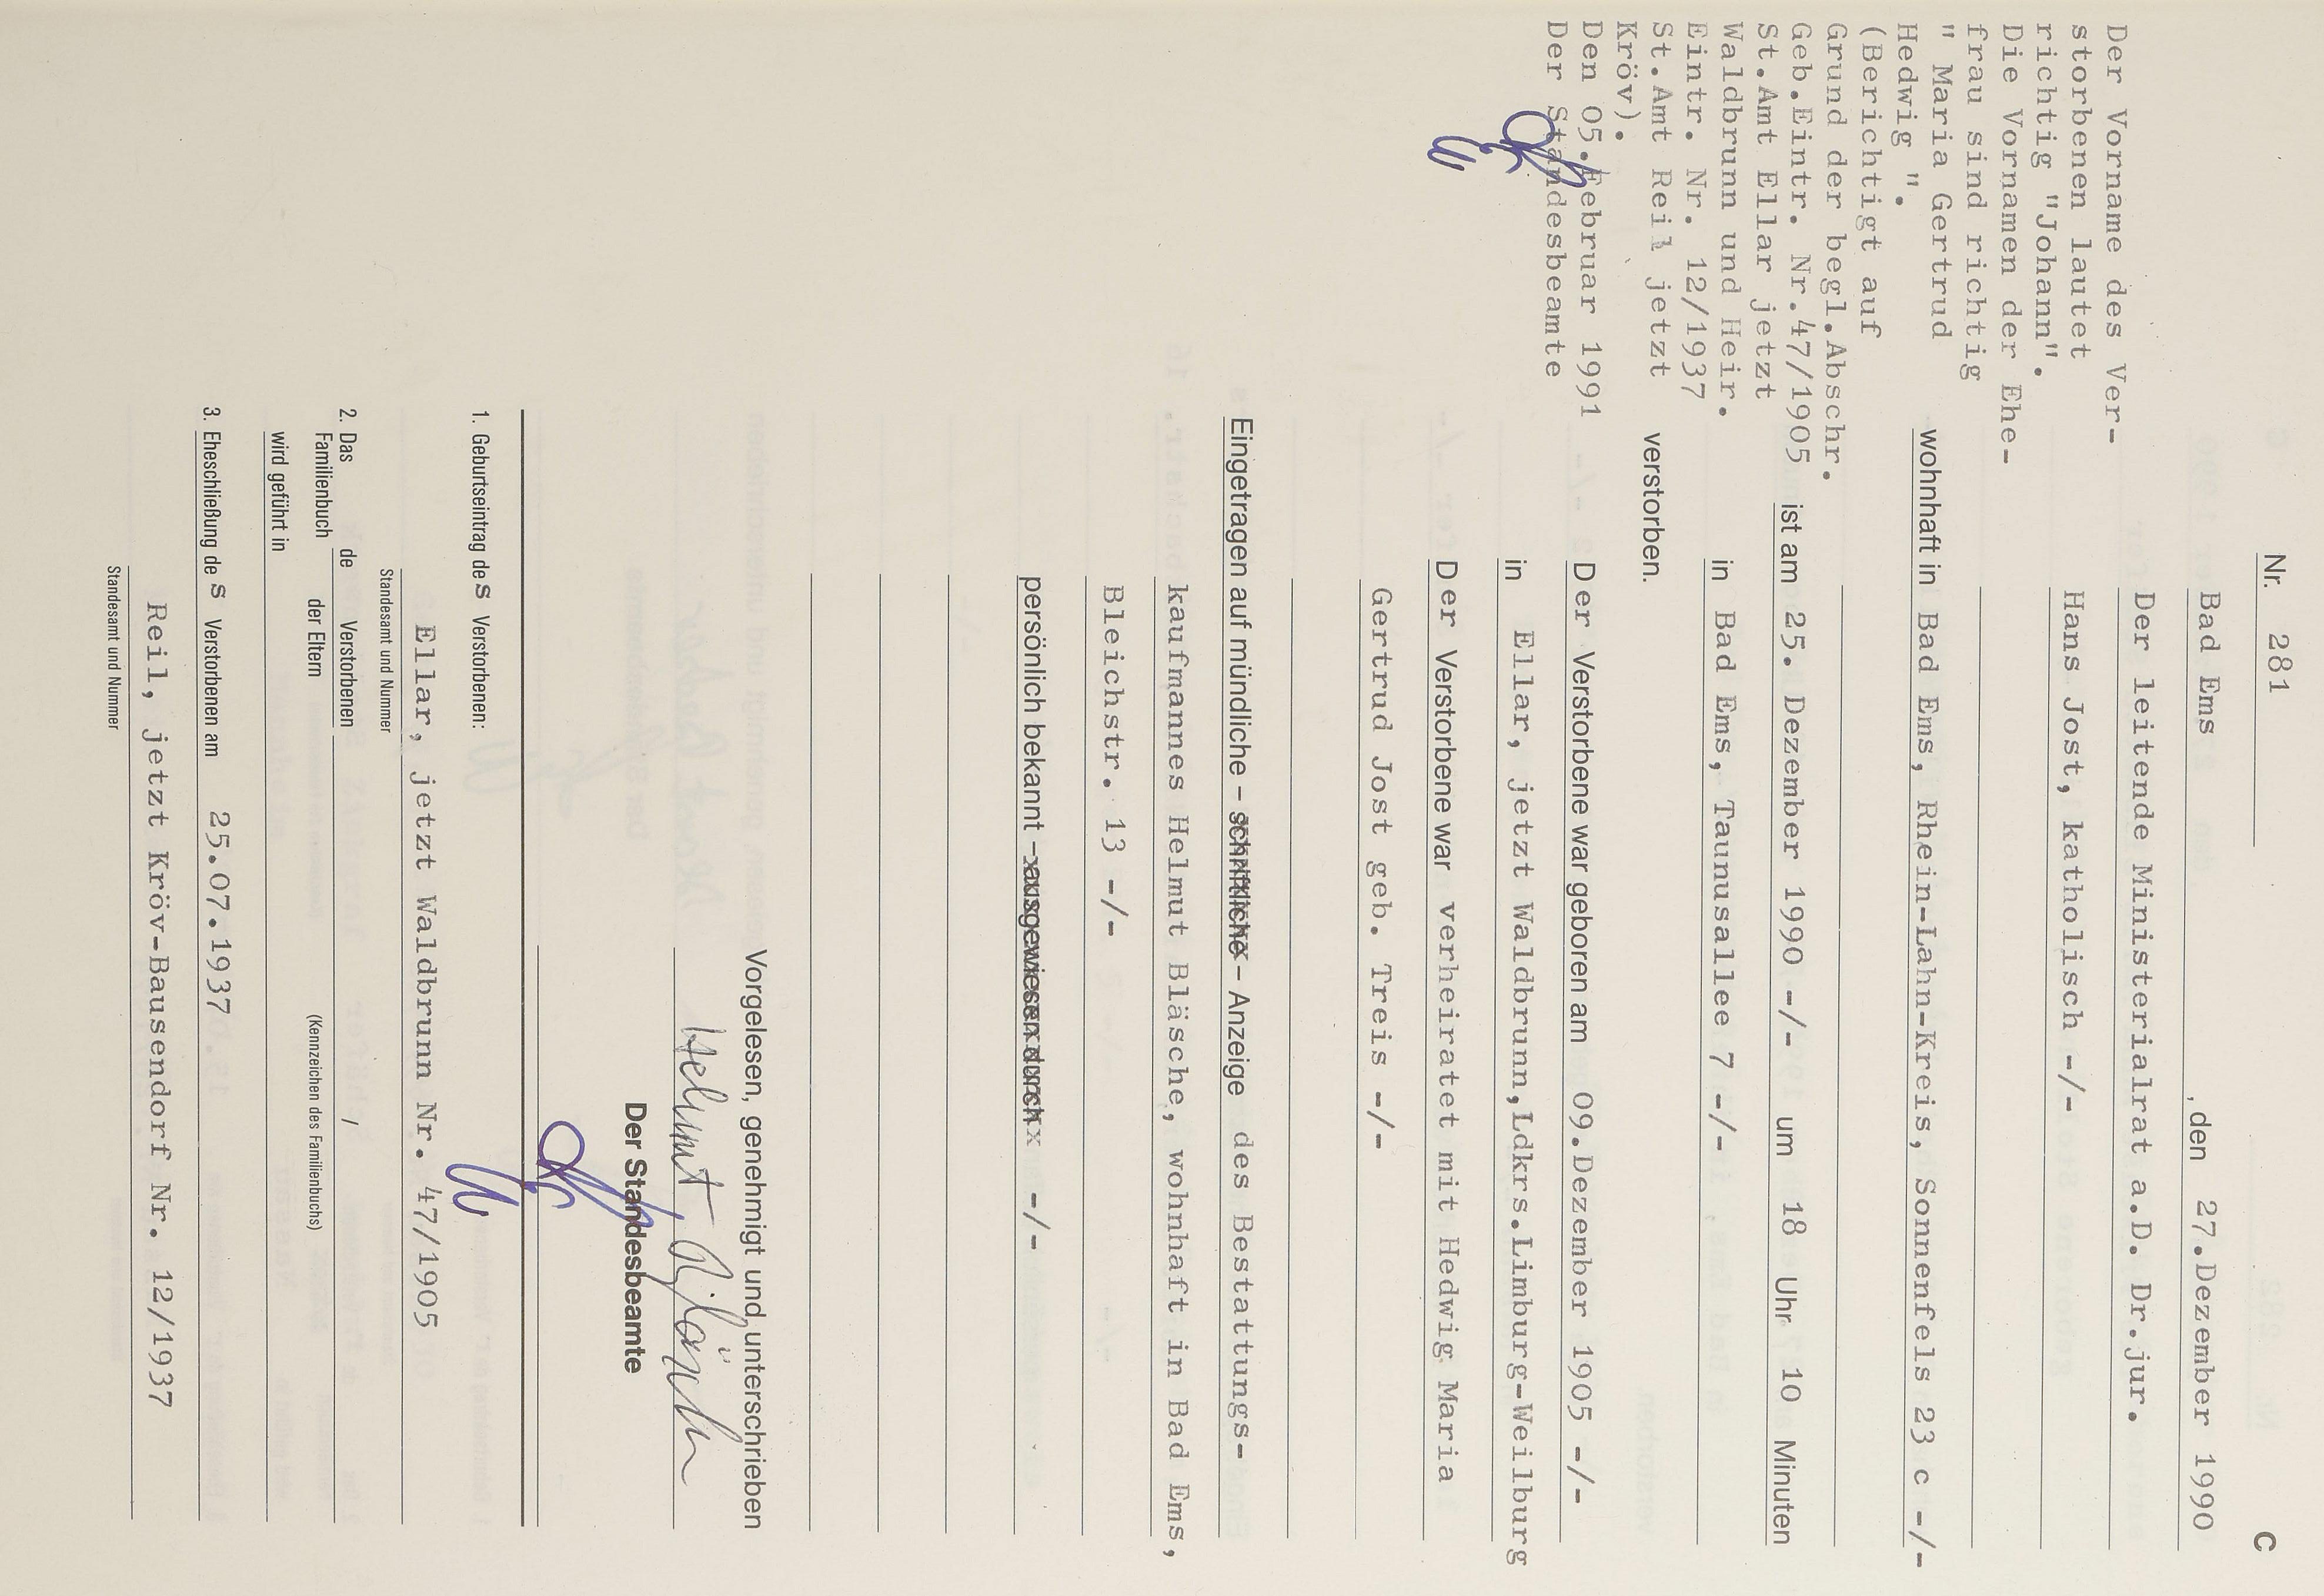 C
Nr. 281
Bad Ems , den 27.Dezember 1990
Der leitende Ministerialrat a.D. Dr.jur.
Hans Jost, katholisch -/-
wohnhaft in Bad Ems, Rhein-Lahn-Kreis, Sonnenfels 23 c -/-
ist am 25. Dezember 1990 -/- um 18 Uhr 10 Minuten
in Bad Ems, Taunusallee 7 -/-
verstorben.
Der Verstorbene war geboren am 09.Dezember 1905 -/-
in Ellar, jetzt Waldbrunn,Ldkrs.Limburg-Weilburg
Der Verstorbene war verheiratet mit Hedwig Maria
Gertrud Jost geb. Treis -/-
Eingetragen auf mündliche – schriftliche – Anzeige des Bestattungs-
kaufmannes Helmut Bläsche, wohnhaft in Bad Ems,
Bleichstr. 13 -/-
persönlich bekannt – ausgewiesen durch -/-
Vorgelesen, genehmigt und unterschrieben
Helmut Bläsche
Der Standesbeamte
1. Geburtseintrag des Verstorbenen:
Ellar, jetzt Waldbrunn Nr. 47/1905
Standesamt und Nummer
2. Das Familienbuch de Verstorbenen / der Eltern
wird geführt in
(Kennzeichen des Familienbuchs)
3. Eheschließung des Verstorbenen am 25.07.1937
Reil, jetzt Kröv-Bausendorf Nr. 12/1937
Standesamt und Nummer
Der Vorname des Ver-
storbenen lautet
richtig "Johann".
Die Vornamen der Ehe-
frau sind richtig
" Maria Gertrud
Hedwig ".
(Berichtigt auf
Grund der begl.Abschr.
Geb.Eintr. Nr.47/1905
St.Amt Ellar jetzt
Waldbrunn und Heir.
Eintr. Nr. 12/1937
St.Amt Reil jetzt
Kröv).
Den 05.Februar 1991
Der Standesbeamte